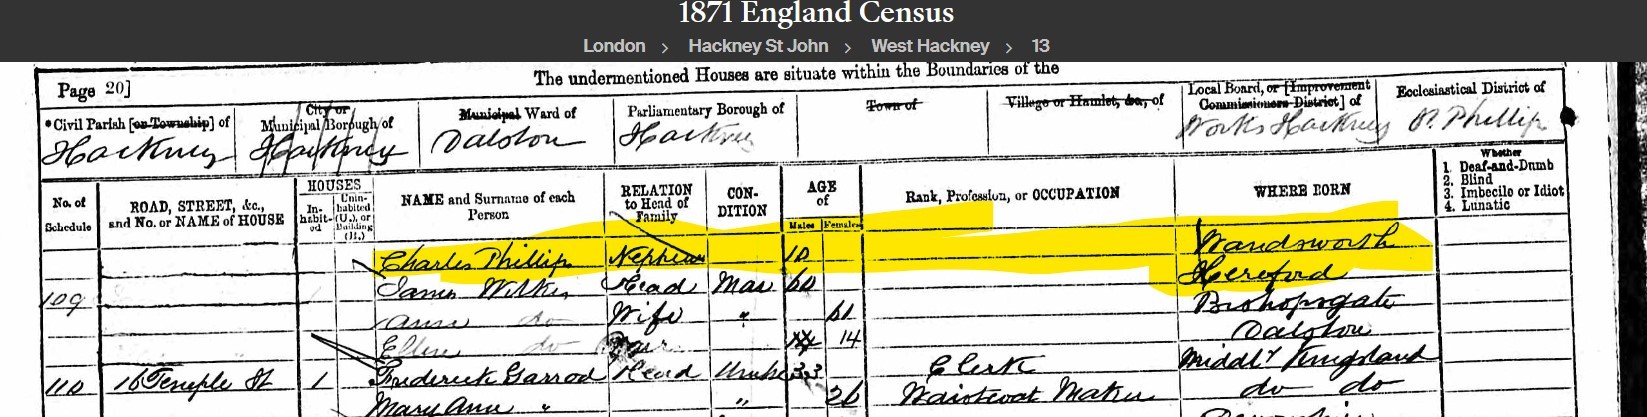 1871 England Census
London > Hackney St John > West Hackney > 13
The undermentioned Houses are situate within the Boundaries of the
Page 20]
Civil Parish [or Township] of
City or Municipal Borough of
Municipal Ward of
Parliamentary Borough of
Town of
Village or Hamlet, &c., of
Local Board, or [Improvement Commissioners District] of
Ecclesiastical District of
Hackney
Hackney
Dalston
Hackney
Works Hackney
St. Phillip
No. of Schedule
ROAD, STREET, &c., and No. or NAME of HOUSE
HOUSES
In-habit-ed
Unin-habited (U.), or Building (B.)
NAME and Surname of each Person
RELATION to Head of Family
CON-DITION
AGE of
Males
Females
Rank, Profession, or OCCUPATION
WHERE BORN
Whether
1. Deaf-and-Dumb
2. Blind
3. Imbecile or Idiot
4. Lunatic
Charles Phillips Nephew 10 Wandsworth
109 James Head Mar 60 Hereford
Ann do Wife " 61 Bishopsgate
Ellen do 14 Dalston
110 16 Temple St 1 Frederick Garrod Head 33 Clerk Middlx Kingsland
Mary Ann " " 26 Waistcoat Maker do do